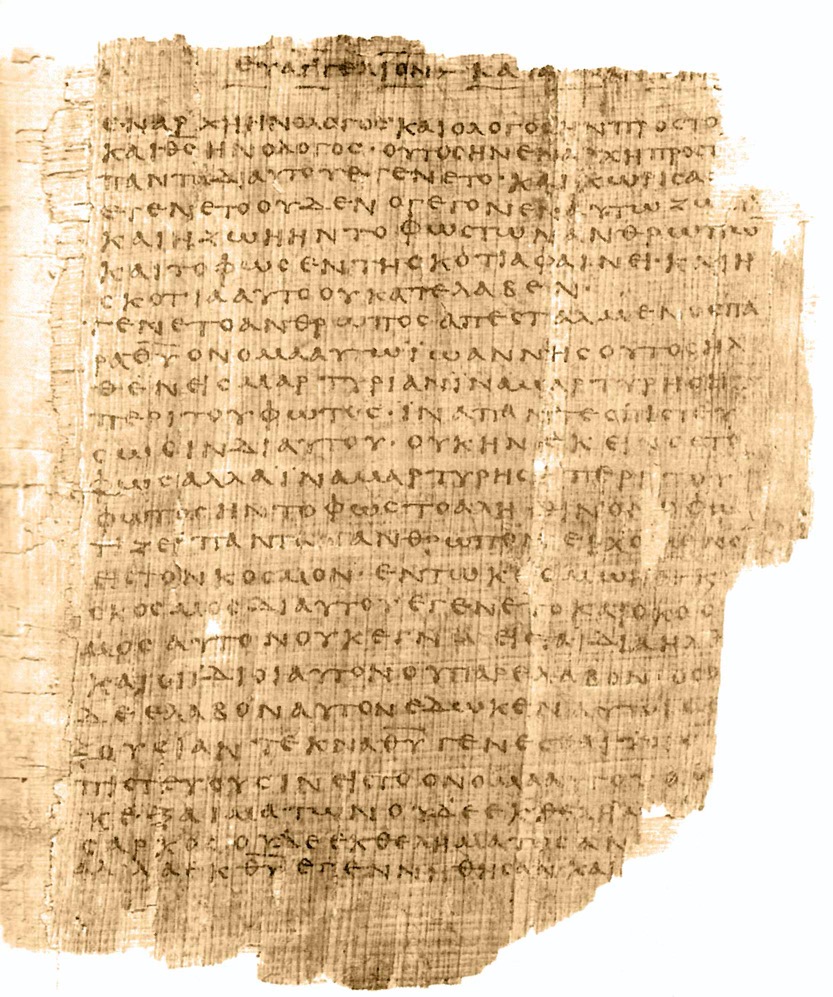 ΕΥΑΓΓΕΛΙΟΝ ΚΑ
ΕΝΑΡΧΗΗΝΟΛΟΓΟϹΚΑΙΟΛΟΓΟϹΗΝΠΡΟϹΤΟ
ΚΑΙΘ̅Ϲ̅ΗΝΟΛΟΓΟϹ·ΟΥΤΟϹΗΝΕΝΑΡΧΗΠΡΟϹ
ΠΑΝΤΑΔΙΑΥΤΟΥΕΓΕΝΕΤΟ·ΚΑΙΧΩΡΙϹΑ
ΕΓΕΝΕΤΟΟΥΔΕΝΟΓΕΓΟΝΕΝΑΥΤΩΖΩ
ΚΑΙΗΖΩΗΗΝΤΟΦΩϹΤΩΝΑΝΘΡΩΠΩ
ΚΑΙΤΟΦΩϹΕΝΤΗϹΚΟΤΙΑΦΑΙΝΕΙ·ΚΑΙΗ
ϹΚΟΤΙΑΑΥΤΟΟΥΚΑΤΕΛΑΒΕΝ·
ΓΕΝΕΤΟΑΝΘΡΩΠΟϹΑΠΕϹΤΑΛΜΕΝΟϹΠΑ
ΡΑΘ̅Υ̅ΟΝΟΜΑΑΥΤΩΙΩΑΝΝΗϹΟΥΤΟϹΗΛ
ΘΕΝΕΙϹΜΑΡΤΥΡΙΑΝΙΝΑΜΑΡΤΥΡΗϹΗ
ΠΕΡΙΤΟΥΦΩΤΟϹ·ΙΝΑΠΑΝΤΕϹΠΙϹΤΕΥ
ϹΩϹΙΝΔΙΑΥΤΟΥ·ΟΥΚΗΝΕΚΕΙΝΟϹΤΟ
ΦΩϹΑΛΛΑΙΝΑΜΑΡΤΥΡΗϹΗΠΕΡΙΤΟΥ
ΦΩΤΟϹΗΝΤΟΦΩϹΤΟΑΛΗΘΙΝΟΝΟΦΩ
ΤΙΖΕΙΠΑΝΤΑΑΝΘΡΩΠΟΝΕΡΧΟΜΕΝΟ
ΕΙϹΤΟΝΚΟϹΜΟΝ·ΕΝΤΩΚΟϹΜΩΗΝΚ
ΟΚΟϹΜΟϹΔΙΑΥΤΟΥΕΓΕΝΕΤΟΚΑΙΟΚΟϹ
ΜΟϹΑΥΤΟΝΟΥΚΕΓΝΩΕΙϹΤΑΙΔΙΑΗΛΘ
ΚΑΙΟΙΙΔΙΟΙΑΥΤΟΝΟΥΠΑΡΕΛΑΒΟΝΟϹΟ
ΔΕΕΛΑΒΟΝΑΥΤΟΝΕΔΩΚΕΝΑΥΤΟΙϹ
ΞΟΥϹΙΑΝΤΕΚΝΑΘ̅Υ̅ΓΕΝΕϹΘΑΙΤΟΙϹ
ΠΙϹΤΕΥΟΥϹΙΝΕΙϹΤΟΟΝΟΜΑΑΥΤΟΥΟΥ
ΚΕΞΑΙΜΑΤΩΝΟΥΔΕΕΚΘΕΛΗΜΑ
ϹΑΡΚΟϹΟΥΔΕΕΚΘΕΛΗΜΑΤΟϹΑΝ
ΑΛΛΑΕΚΘ̅Υ̅ΕΓΕΝΝΗΘΗϹΑΝΚΑΙ